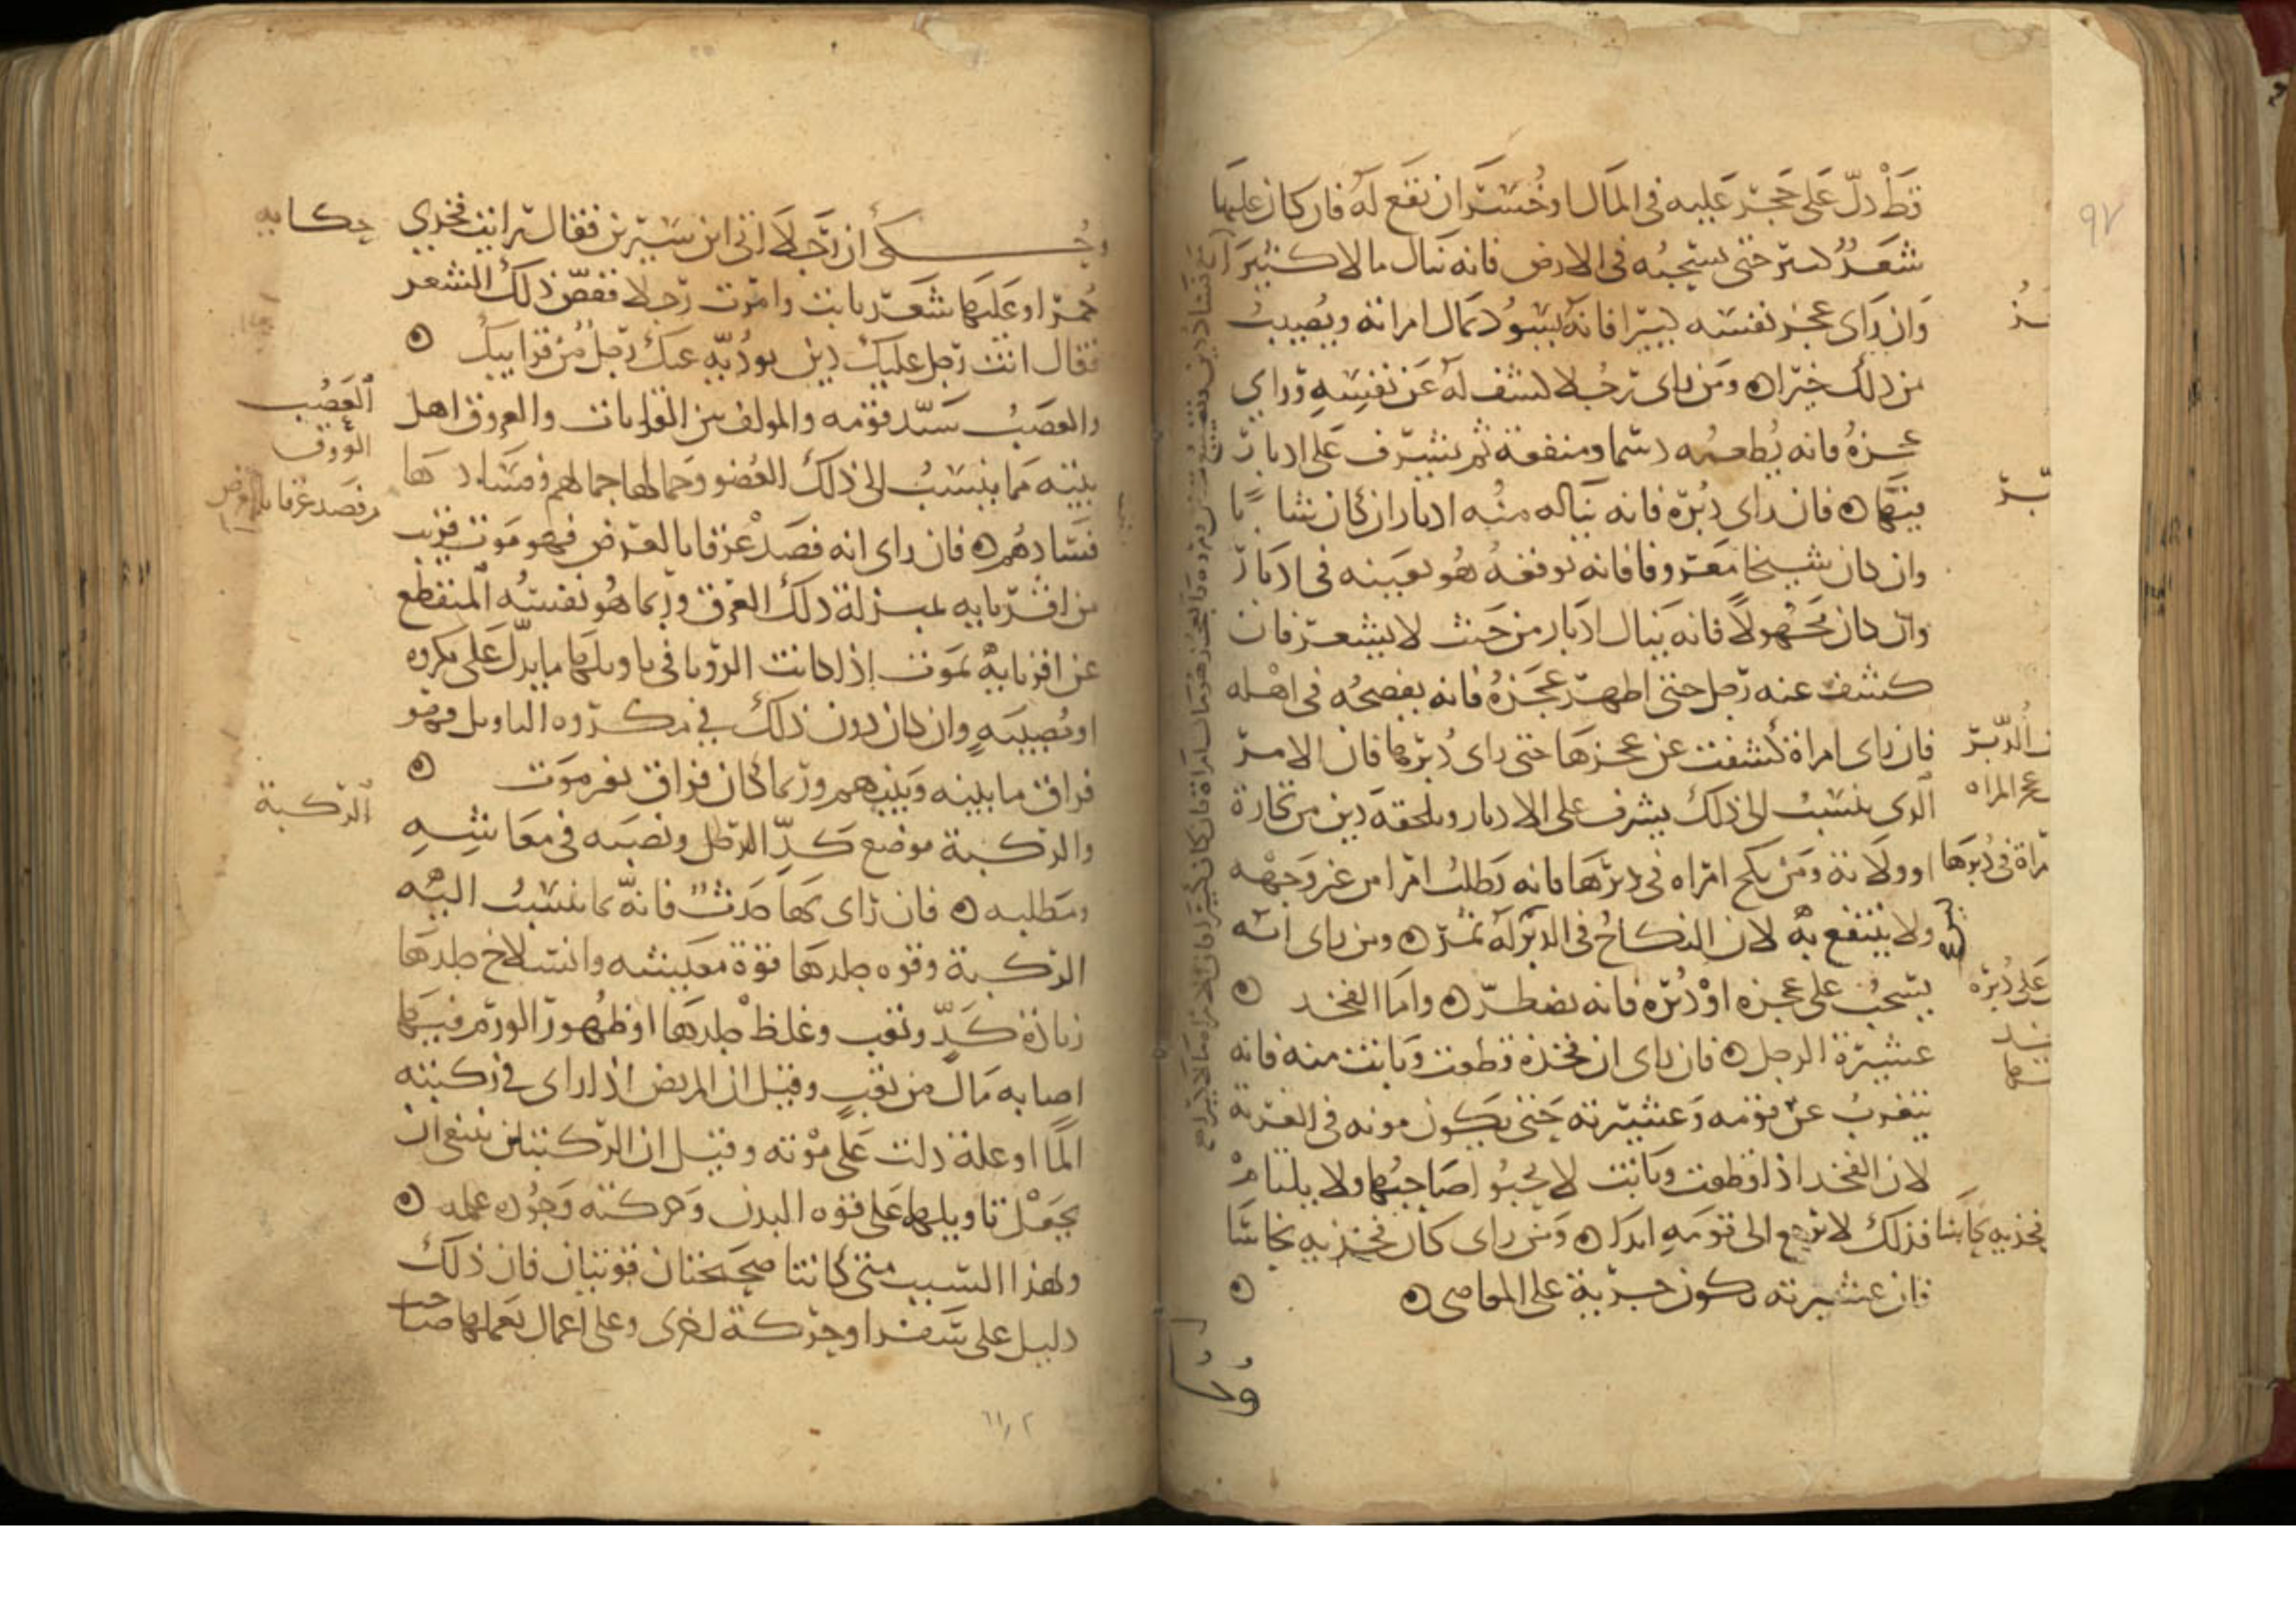 قط دل على حجر عليه فى المال او خسران نقع له فان كان عليها
شعر لستر حتى يستحبه فى الارض فانه ينال مالا كثيرا
وان راى عجز نفسه كبيرا فانه يسود بمال امراته ويصيب
من ذلك خيرا ومن راى رجلا كشف له عن نفسه وراى
عجزه فانه يطعمه دسما ومنفعة ثم يشرف على ادبار
فيها فان راى دبره فانه يناله منه ادبار ان كان شابا
وان كان شيخا معروفا فانه يوقعه هو بعينه فى ادبار
وان كان مجهولا فانه ينال ادبار من حيث لا يشعر فان
كشف عنه رجل حتى اظهر عجزه فانه يفضحه فى اهله
فان راى امراة كشفت عن عجزها حتى راى دبرها فان الامر
الذى ينسب الى ذلك يشرف على الادبار ويلحقه دين من تجارة
او ولاته ومن نكح امراه فى دبرها فانه يطلب امرا من غير وجهه
ولا ينتفع به لان النكاح فى الدبر له ثمر ومن راى انه
يسحب على عجزه او دبره فانه يضطر واما الفخد
عشيرة الرجل فان راى ان فخذه قطعت وبانت منه فانه
يتغرب عن قومه وعشيرته حتى يكون موته فى الغربة
لان الفخد اذا قطعت وبانت لا يحبو صاحبها ولا يلتام
فذلك لا يرجع الى قومه ابدا ومن راى كان فخذيه نحاسا
فان عشيرته تكون جرية على المعاصى
الدبر
عجز المراه
مراة فى دبرها
على دبره
فخذيه نحاسا
وحكى ان رجلا اتى ابن سيرين فقال رايت فخدي
حمرا وعليها شعر نابت وامرت رجلا فقص ذلك الشعر
فقال انت رجل عليك دين يوديه عنك رجل من قرابتك
والعصب سيد قومه والمولف بين القرابات والعروق اهل
بيته مما ينسب الى ذلك العضو وجمالها جمالهم وفسادها
فسادهم فان راى انه فصد عرقا بالعرض فهو موت قريب
من اقربايه بمنزلة ذلك العرق وربما هو نفسه المنقطع
عن اقربايه بموت اذا كانت الرويا فى تاويلها ما يدل على مكروه
او مصيبه وان كان دون ذلك فى مكروه التاويل فهو
فراق ما بينه وبينهم وربما كان فراق بغير موت
والركبة موضع كد الرجل ونصبه فى معاشه
ومطلبه فان راى بها حدث فانه مما ينسب اليه
الركبة وقوه جلدها قوة معيشه وانسلاخ جلدها
زيادة كد وتعب وغلظ جلدها او ظهور الورم فيها
اصابه مال من تعب وقيل ان المريض اذا راى فى ركبته
الما او علة دلت على موته وقيل ان الركبتين ينبغى ان
يجعل تاويلها على قوه البدن وحركته وجوده عمله
ولهذا السبب متى كانتا صحيحتان قويتان فان ذلك
دليل على سفر او حركة اخرى وعلى اعمال يعملها صاحب
حكايه
العصب
العروق
من فصد عرقا بالعرض
الركبة